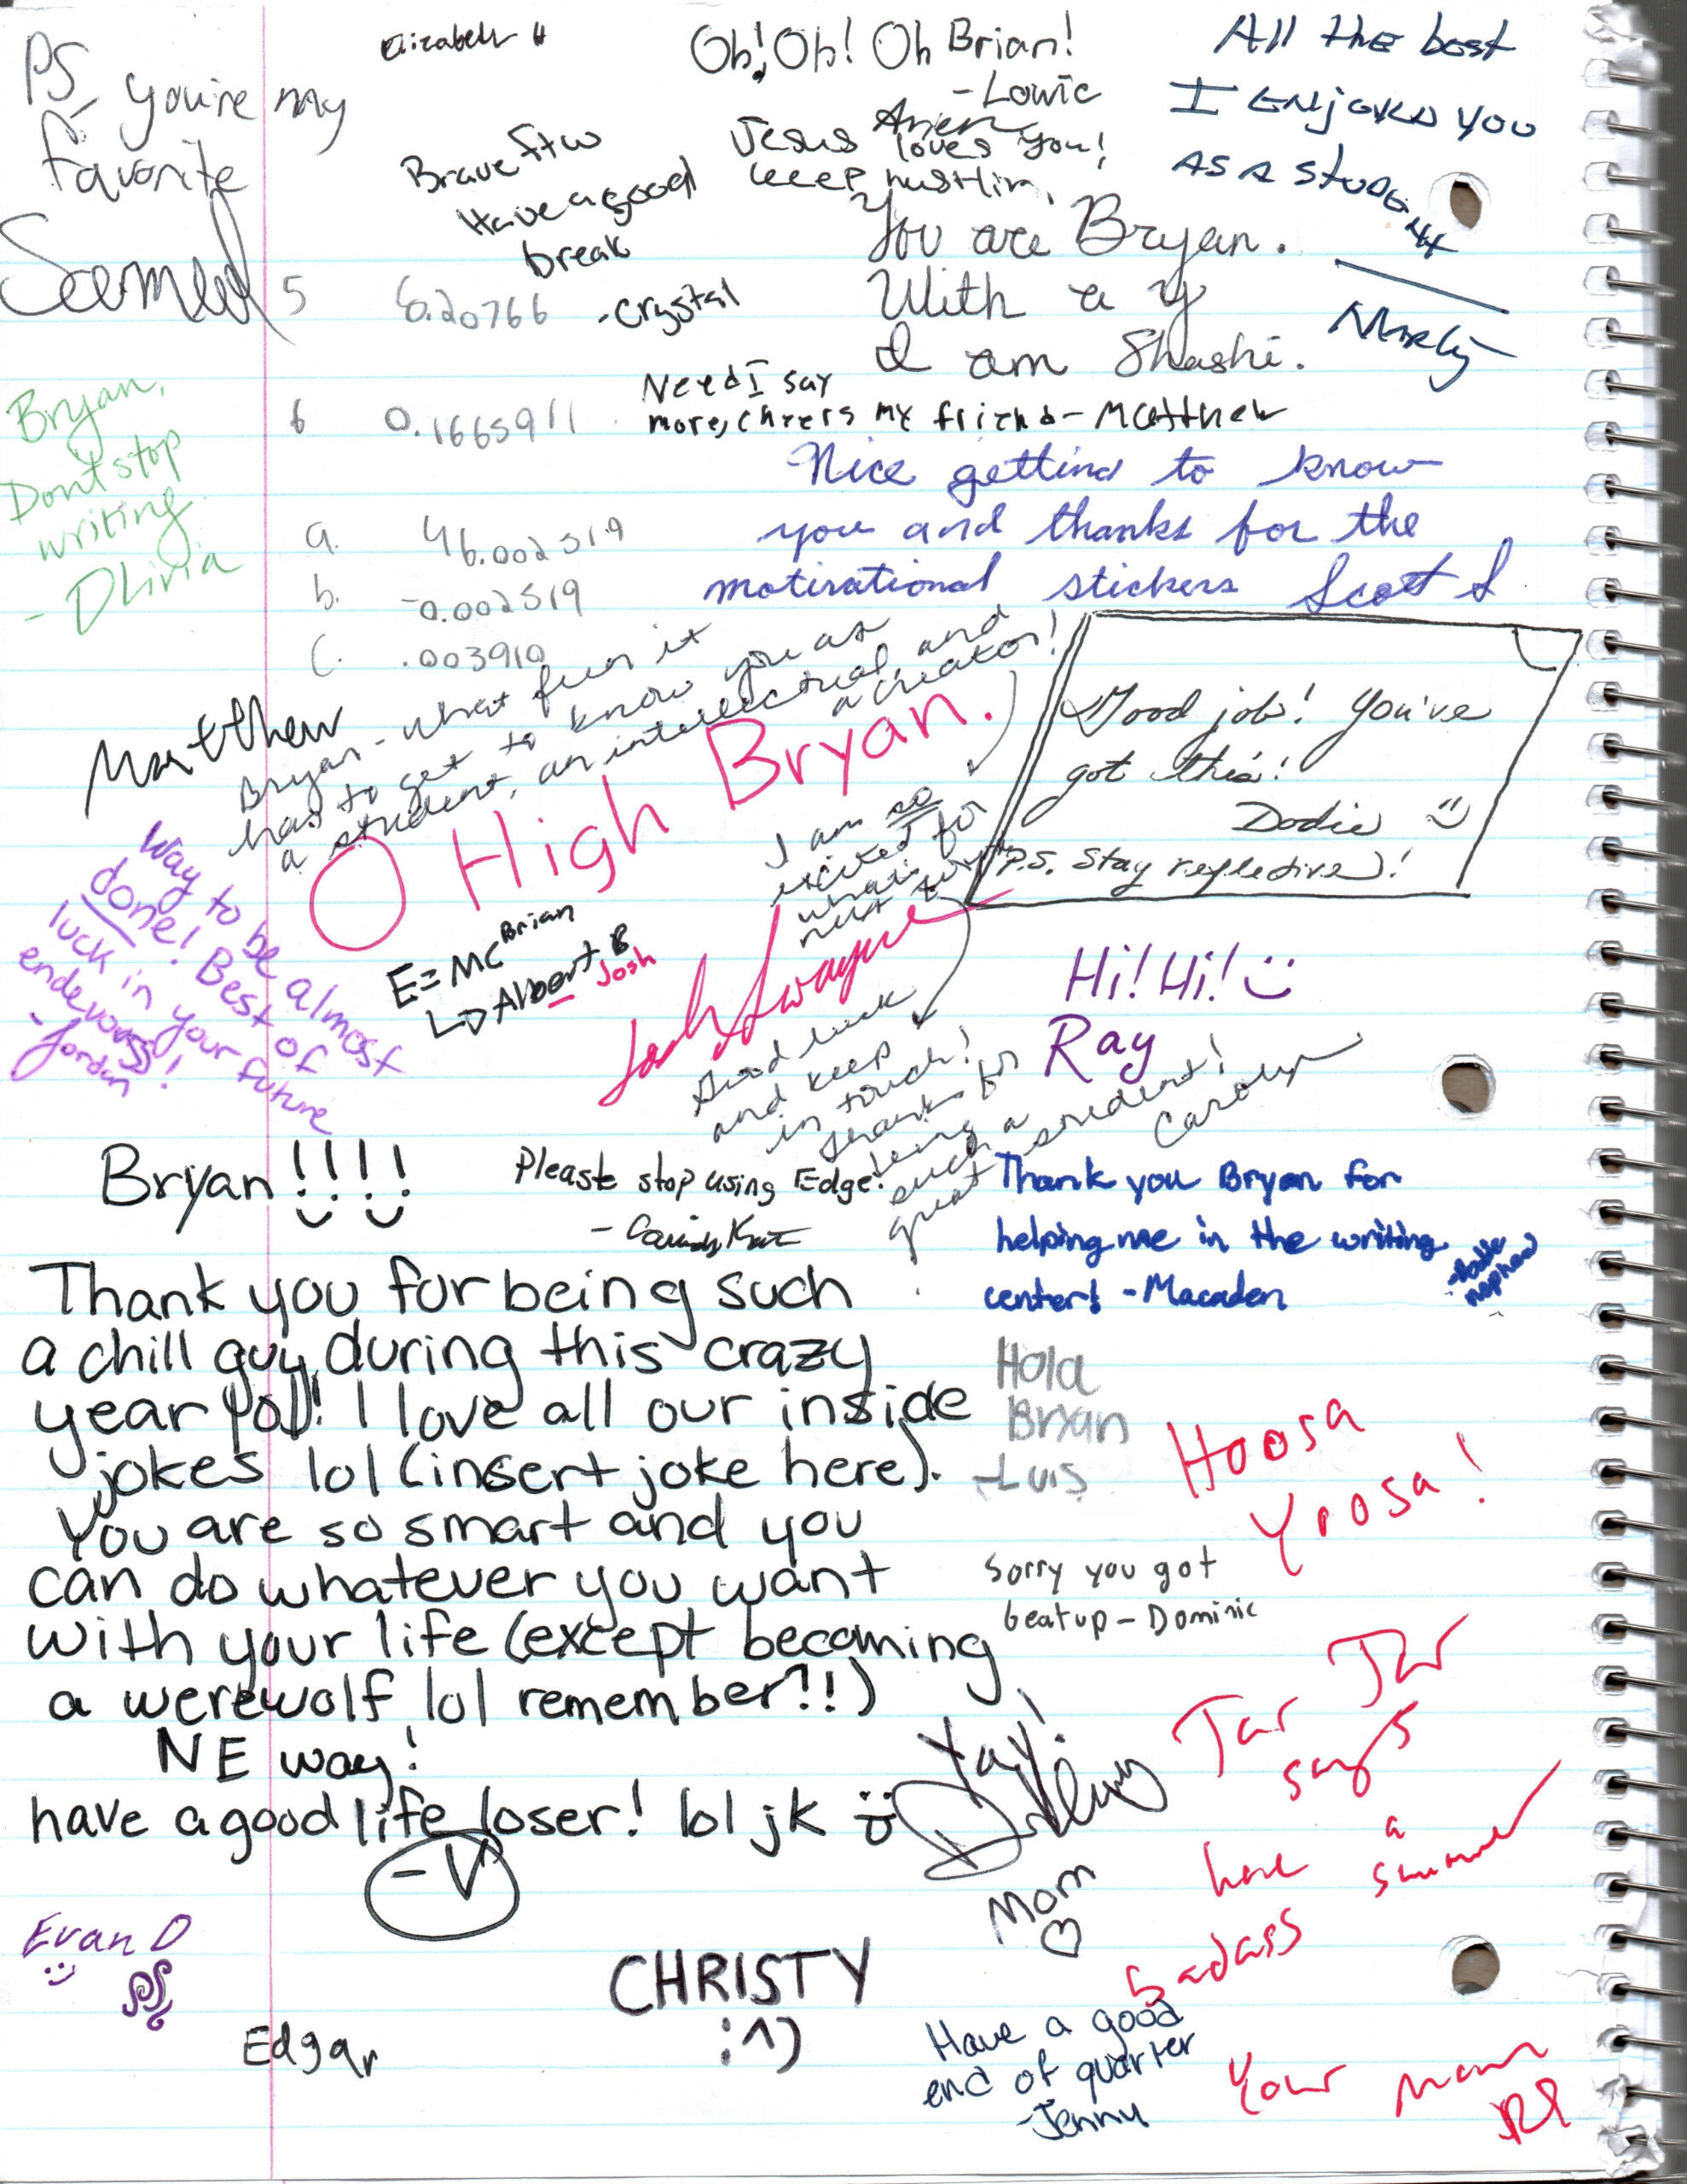 PS
you're my
favorite
Elizabeth H
Oh! Oh! Oh Brian!
- Lowic
All the best
I ENjoyed you
AS A STUDENT
Marty
Brave ftw
Have a good
break
- Crystal
Jesus loves you!
keep hustlin,
You are Bryan.
With a y
I am Shashi.
5 6.20766
6 0.1665911
Need I say
more, cheers my friend - Matthew
Bryan,
Dont stop
writing
- Olivia
Nice getting to know
you and thanks for the
motivational stickers Scott S
a. 46.002519
b. -0.002519
c. .003910
Matthew
Bryan - what fun it
has to get to know you as
a student, an intellectual and
a creator!
I am so
excited for
what's
next
Good luck
and keep
in touch!
Thanks for
being
such a
great student!
Carolyn
O High Bryan.
Josh Swayne
Good job! You've
got this!
Dodie
P.S. Stay reflective!
Way to be almost
done! Best of
luck in your future
endevours!
- Jordan
E=MC Brian
Albert B
Josh
Hi! Hi!
Ray
Bryan!!!!
Please stop using Edge!
Thank you Bryan for
helping me in the writing
center! - Macaden
Thank you for being such
a chill guy during this crazy
year lol! I love all our inside
jokes lol (insert joke here).
You are so smart and you
can do whatever you want
with your life (except becoming
a werewolf lol remember?!!)
NE way!
have a good life loser! lol jk
- V
Hola
Bryan
- Luis
Hoosa
Yoosa!
Sorry you got
beat up - Dominic
Yay!
Jar Jar
says
have a
badass summer
Mom
Evan D
CHRISTY
:^)
Edgar
Have a good
end of quarter
- Jenny
Your mom